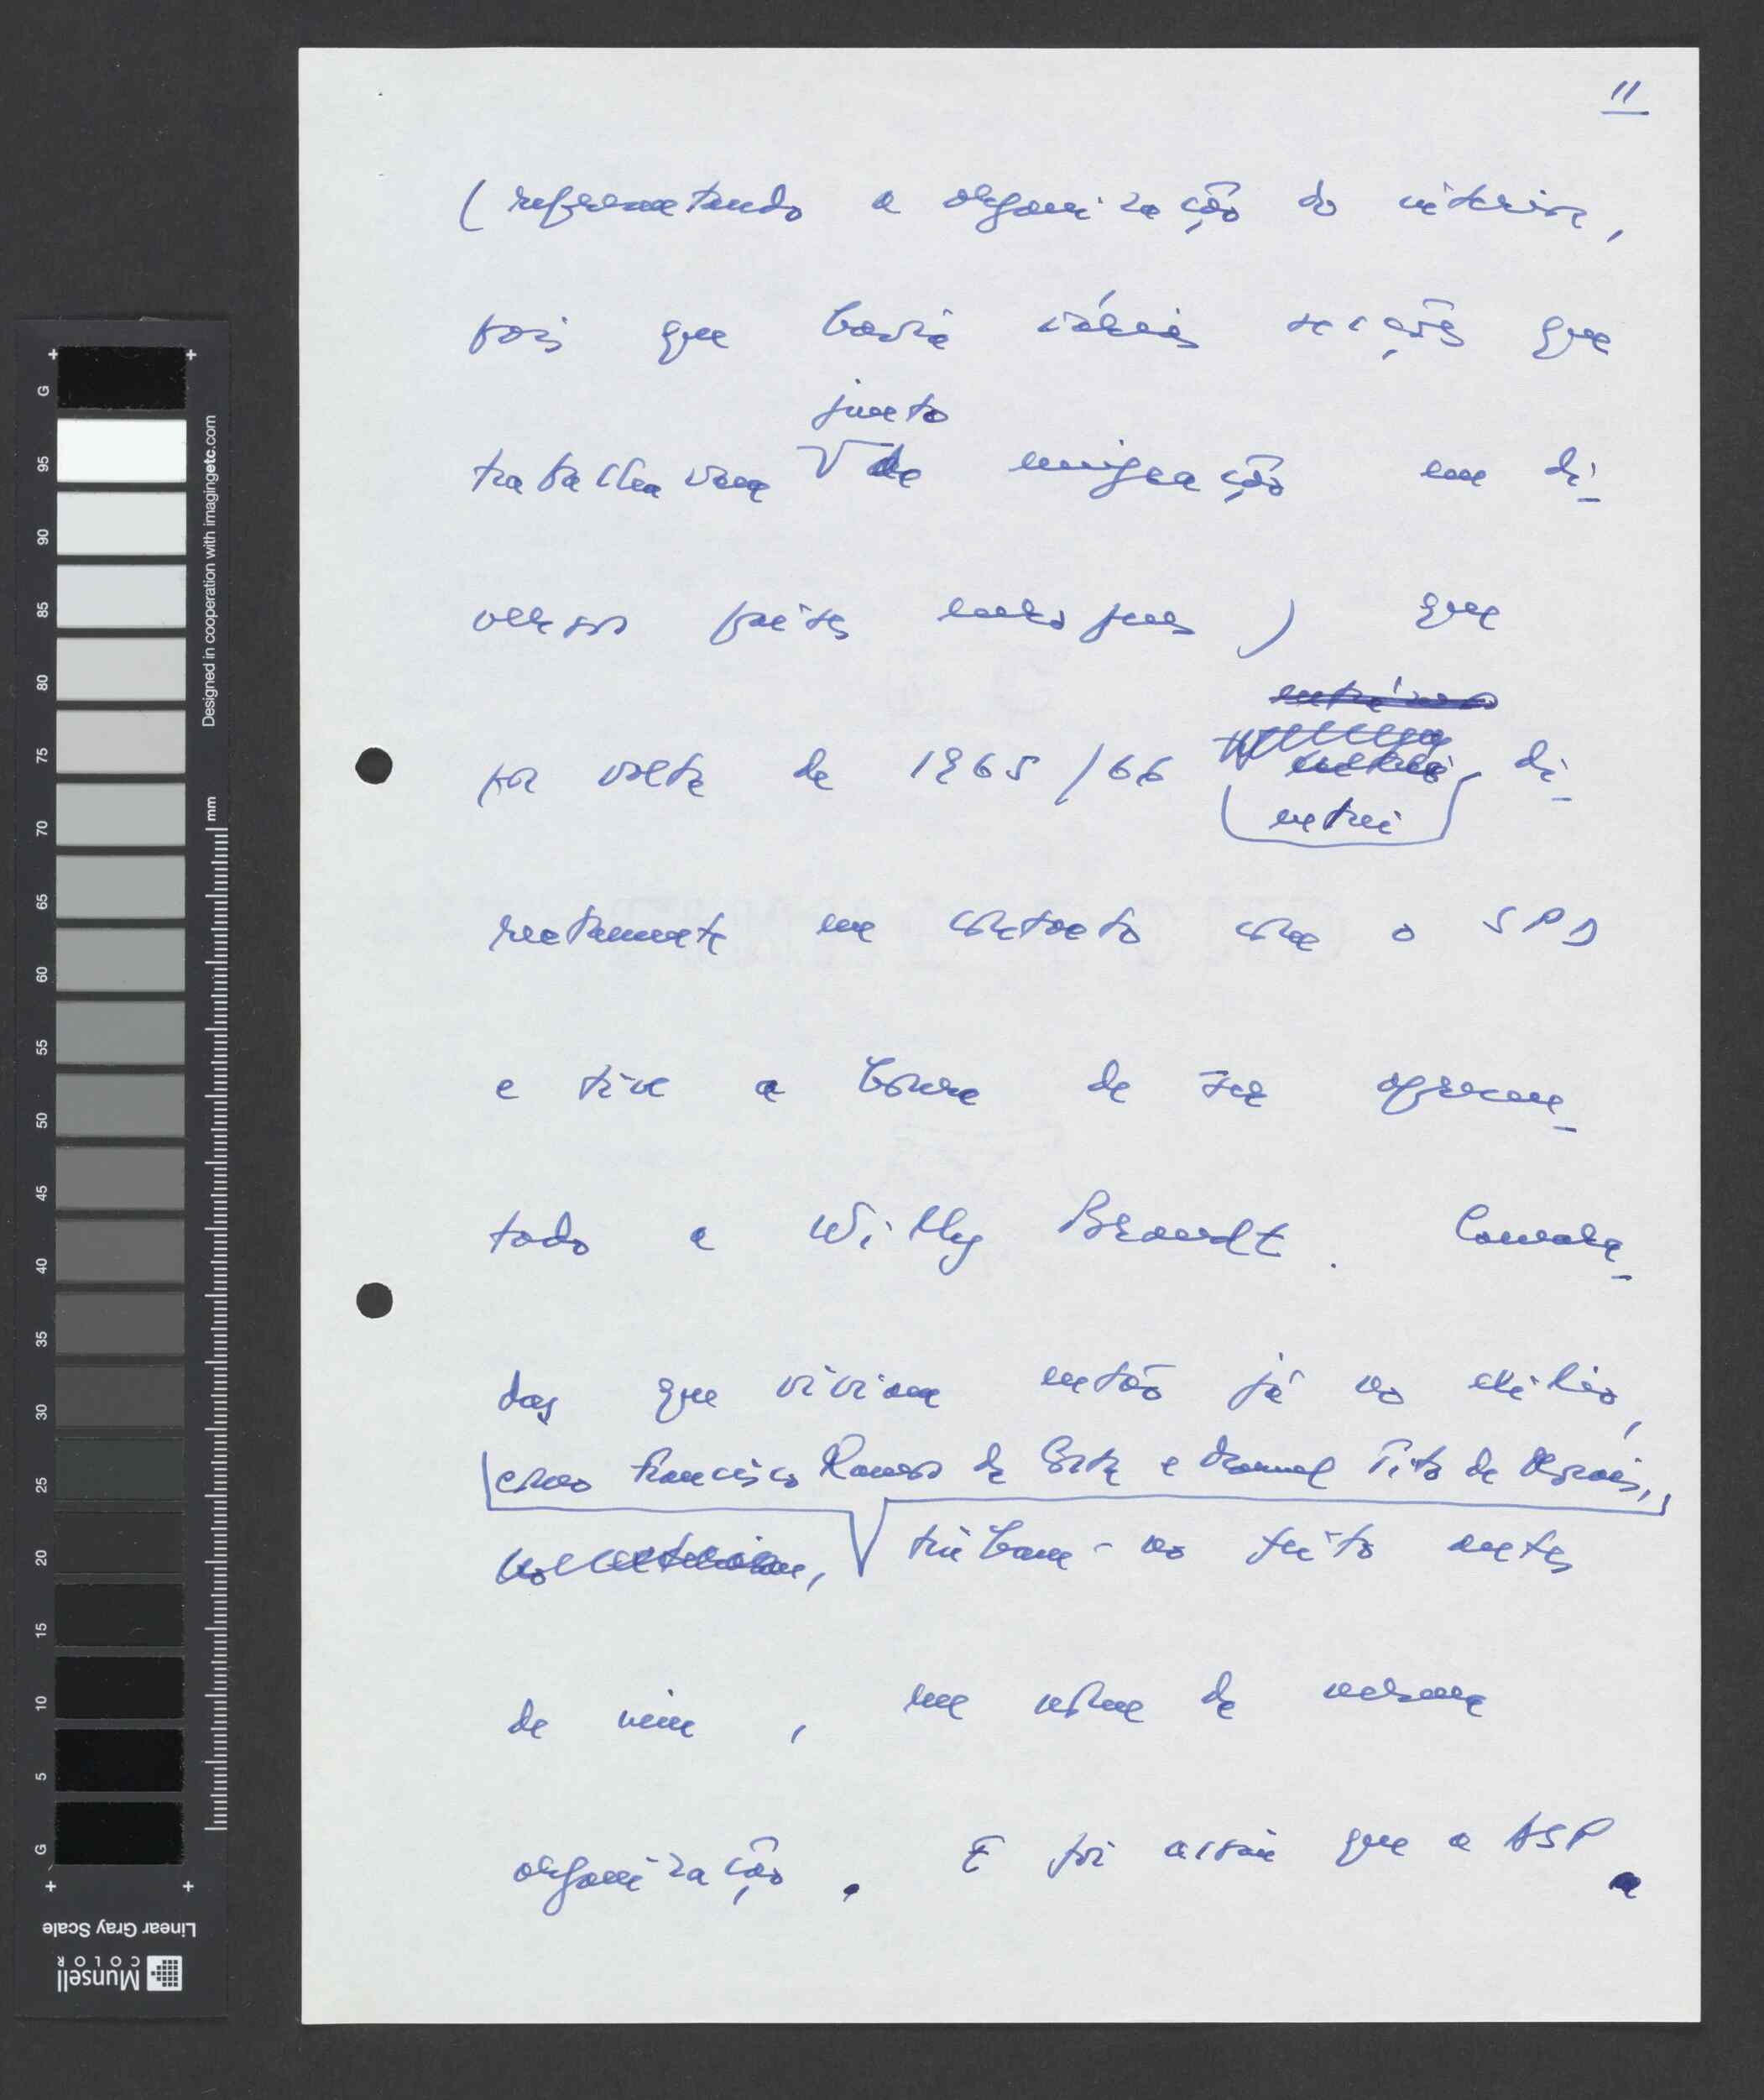 11
(representando a organização do interior,
pois que havia várias secções que
junto
trabalhavam da emigração em di-
versos países europeus) que
por volta de 1965/66 di-
entrei
rectamente em contacto com o SPD
e tive a honra de ser apresen-
tado a Willy Brandt. Camara-
das que viviam então já no exílio,
como Francisco Ramos da Costa e Manuel Tito de Morais,
tinham-no feito antes
de mim, em nome da mesma
organização. E foi assim que a ASP
G 95 90 85 80 75 70 65 60 55 50 45 40 35 30 25 20 15 10 5 G
Designed in cooperation with imagingetc.com
mm
Linear Gray Scale
Munsell
COLOR